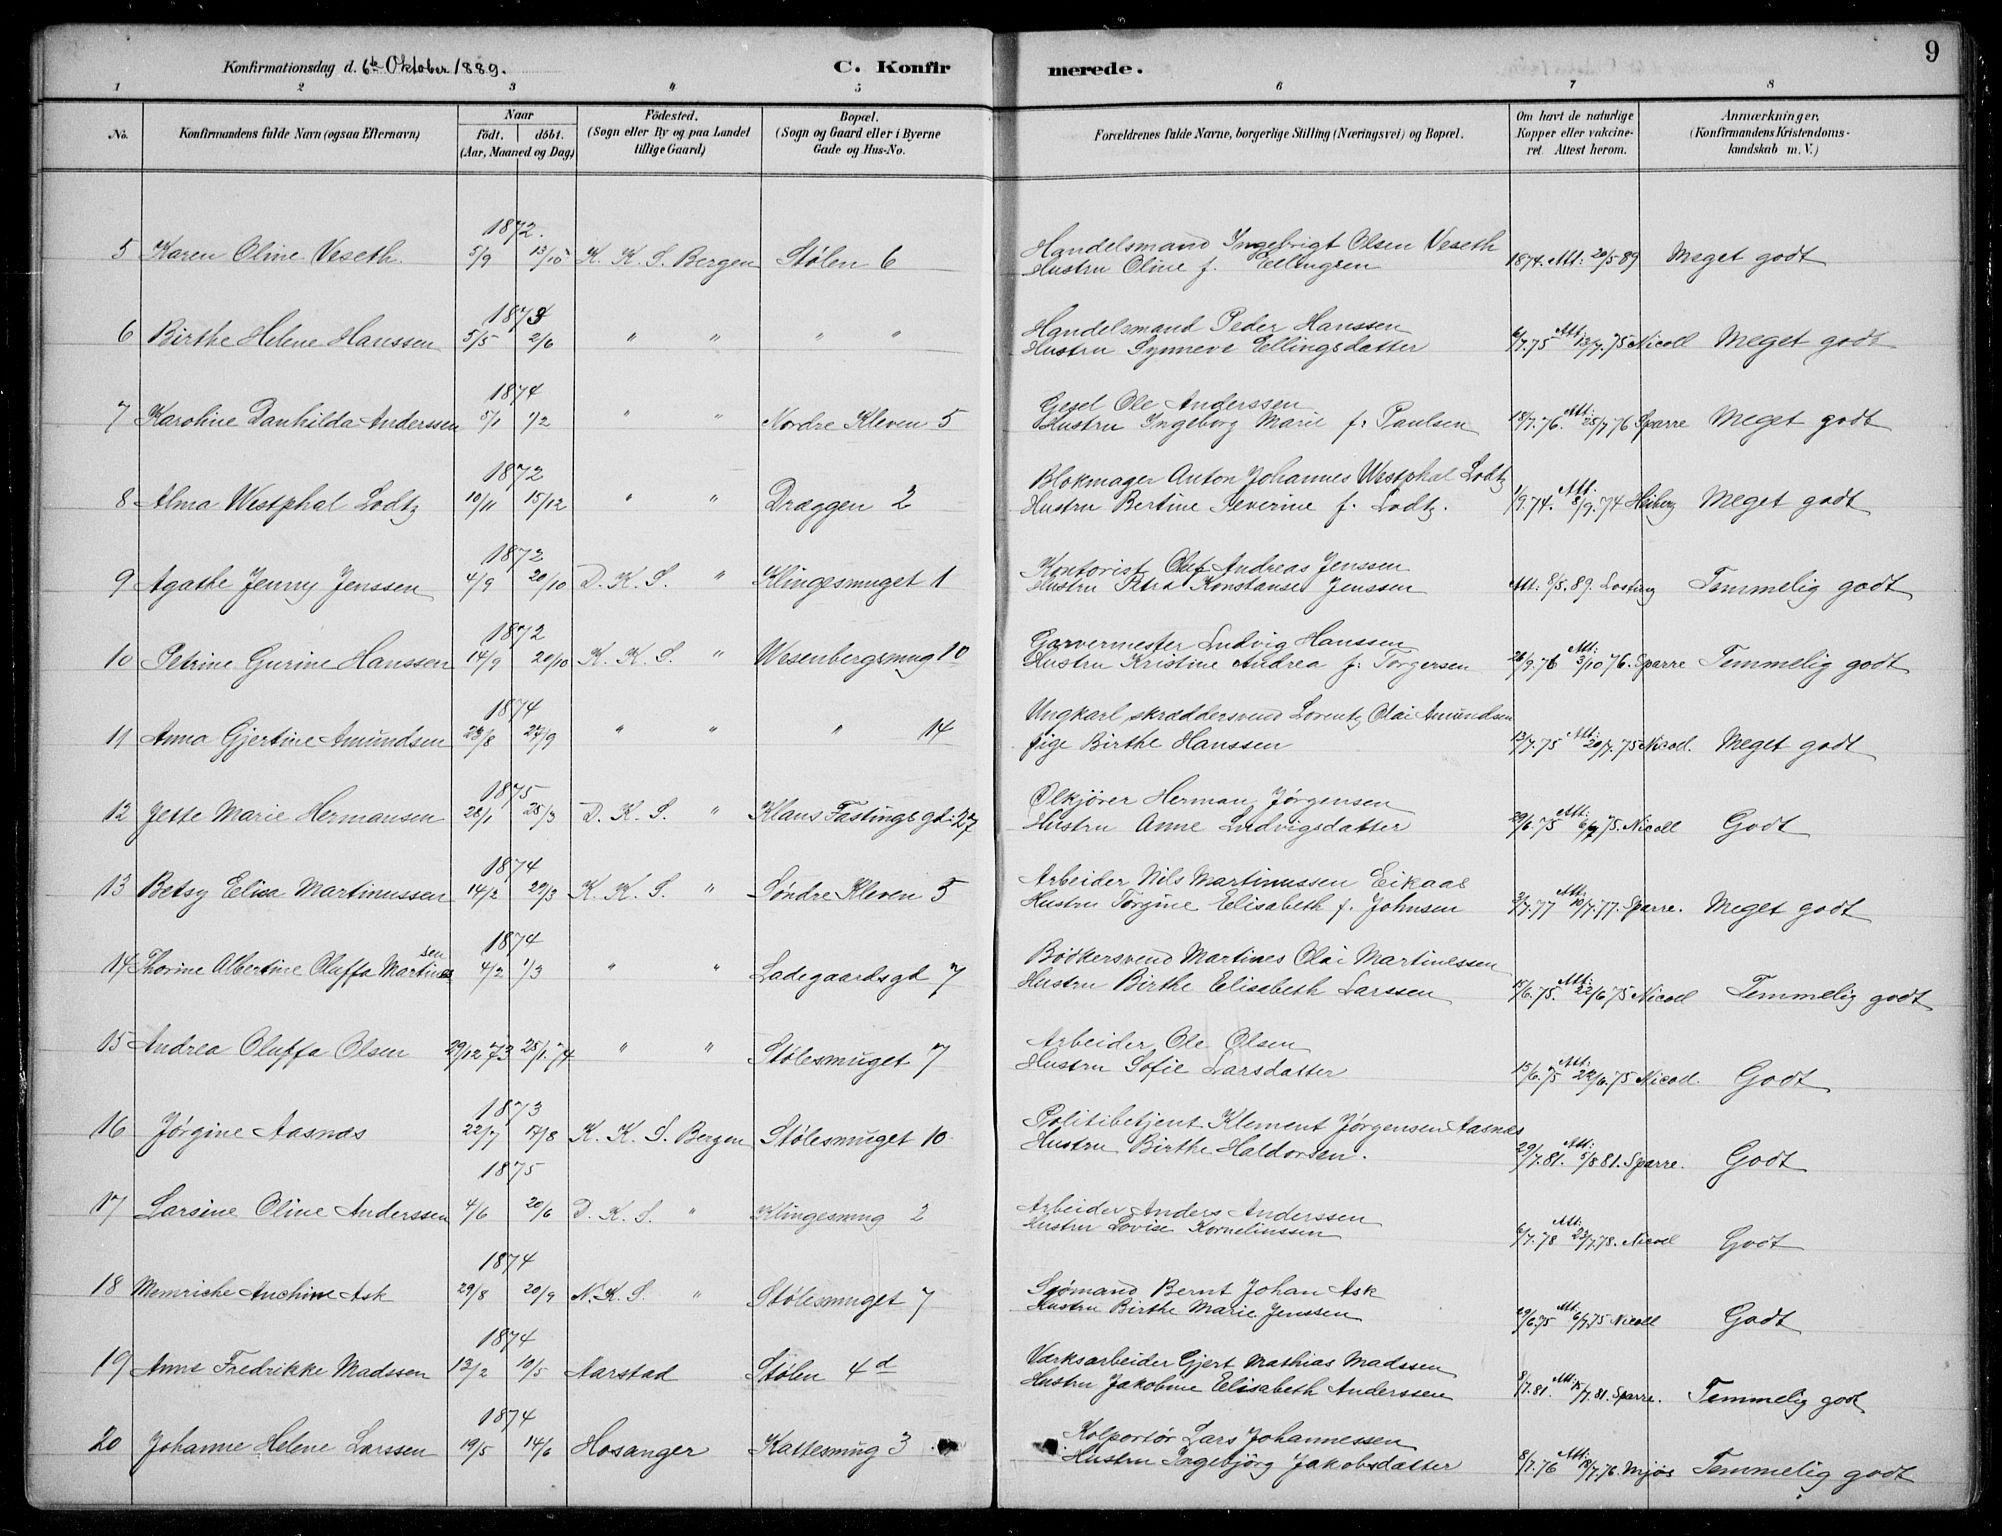 Konfirmationsdag d. 6te Oktober 1889. C. Konfirmerede. 9
1 2 3 4 5 6 7 8
No. Konfirmandens fulde Navn (ogsaa Efternavn) Naar födt. döbt. (Aar, Maaned og Dag) Födested. (Sogn eller By og paa Landet tillige Gaard) Bopæl. (Sogn og Gaard eller i Byerne Gade og Hus-No. Forældrenes fulde Navne, borgerlige Stilling (Næringsvei) og Bopæl. Om havt de naturlige Kopper eller vakcineret. Attest herom. Anmærkninger, (Konfirmandens Kristendomskundskab m. V.)
1872.
5 Karen Oline Veseth. 5/9 13/10 K. K. S. Bergen Stølen 6 Handelsmand Ingebrigt Olsen Veseth
Hustru Oline f. Ellingsen 1874. Att: 20/5 89 Meget godt
1873
6 Birthe Helene Hanssen 5/5 2/6 " " " " Handelsmand Peder Hanssen
Hustru Synneve Ellingsdatter 6/7.75 Att 13/7.75 Nicoll Meget godt
1874
7 Karoline Danhilda Anderssen 5/1 1/2 " " Nordre Kleven 5 Gesel Ole Anderssen
Hustru Ingeborg Marie f. Paulsen 18/7.76. Att: 25/7 76 Sparre Meget godt
1872
8 Alma Westphal Lodtz 10/11 15/12 " " Dræggen 2 Blokmager Anton Johannes Westphal Lodtz
Hustru Bertine Severine f. Lodtz. 1/9.74. Att: 8/9.74 Heiberg Meget godt
1872
9 Agathe Jenny Jenssen 4/9 20/10 D. K. S. " Klingesmuget 1 Kontorist Olaf Andreas Jenssen
Hustru Petra Konstanse Jenssen Att: 8/5.89. Losting Temmelig godt
1872
10 Petrine Gurine Hanssen 14/9 20/10 K. K. S. " Wesenbergsmug 10 Garvermester Ludvig Hanssen
Hustru Kristine Andrea f. Torgersen 26/9.76 Att: 3/10 76. Sparre Temmelig godt
1874
11 Anna Gjertine Amundsen 23/8 27/9 " " " 14 Ungkarl, skræddersvend Lorentz Olai Amundsen
pige Birthe Hanssen 13/7.75 Att: 20/7.75 Nicoll. Meget godt
1875
12 Jette Marie Hermansen 28/1 28/3 D. K. S. " Klaus Fastings gd: 27 Olkjører Herman Jørgensen
Hustru Anne Ludvigsdatter 29/6.75 Att: 6/7 75. Nicoll Godt
1874
13 Betsy Elisa Martinussen 14/2 29/3 K. K. S. " Søndre Kleven 5 Arbeider Nils Martinussen Eikaas
Hustru Torgine Elisabeth f. Johnsen 3/7.77 Att 10/7.77. Sparre. Meget godt
1874
14 Thorine Albertine Oluffa Martinessen 4/2 1/3 " " Ladegaardsgt 7 Bødkersvend Martines Olai Martinessen
Hustru Birthe Elisabeth Larssen 15/6.75. Att: 22/6.75 Nicoll Temmelig godt
15 Andrea Oluffa Olsen 29/12 73 25/1.74 " " Stølesmuget 7 Arbeider Ole Olsen
Hustru Sofie Larsdatter 15/6.75 Att: 22/6.75 Nicoll. Godt
1873
16 Jørgine Aasnæs 22/7 17/8 K. K. S. Bergen Stølesmuget 10. Politibetjent Klement Jørgensen Aasnæs
Hustru Birthe Haldorsen. 29/7.81. Att: 5/8 81. Sparre. Godt
1875
17 Larsine Oline Anderssen 4/6 20/6 D. K. S. " Klingesmug 2 Arbeider Anders Anderssen
Hustru Lovise Korneliussen 6/7.78 Att: 23/7.78. Nicoll Godt
1874
18 Memriche Anchine Ask 29/8 20/9 N. K. S. " Stølesmuget 7 Sømand Bernt Johan Ask
Hustru Birthe Marie Jenssen 29/6.75 Att: 6/7.75 Nicoll Godt
1874
19 Anna Fredrikke Madssen 13/2 10/5 Aarstad Stølen 4d Værksarbeider Gjert Mathias Madssen
Hustru Jakobine Elisabeth Anderssen 8/7.81. Att: 15/7.81. Sparre. Temmelig godt
1874
20 Johanne Helene Larssen 19/5 14/6 Hosanger Kattesmug 3 Kolportør Lars Johannessen
Hustru Ingebjörg Jakobsdatter 8/7.76 Att: 18/7.76. Mjös Temmelig godt